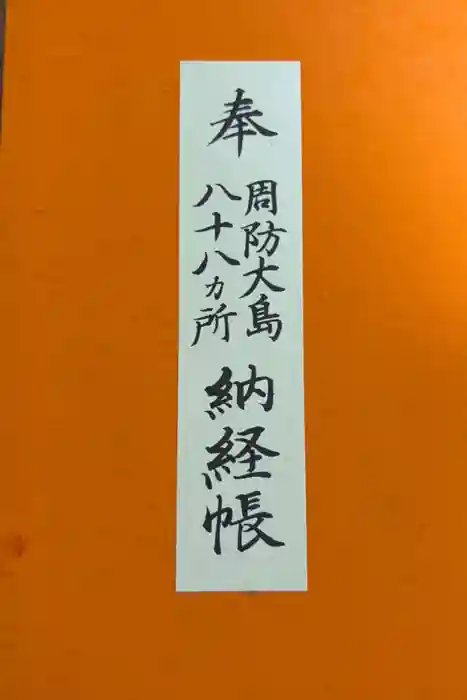 奉
周防大島
八十八ヵ所
納経帳